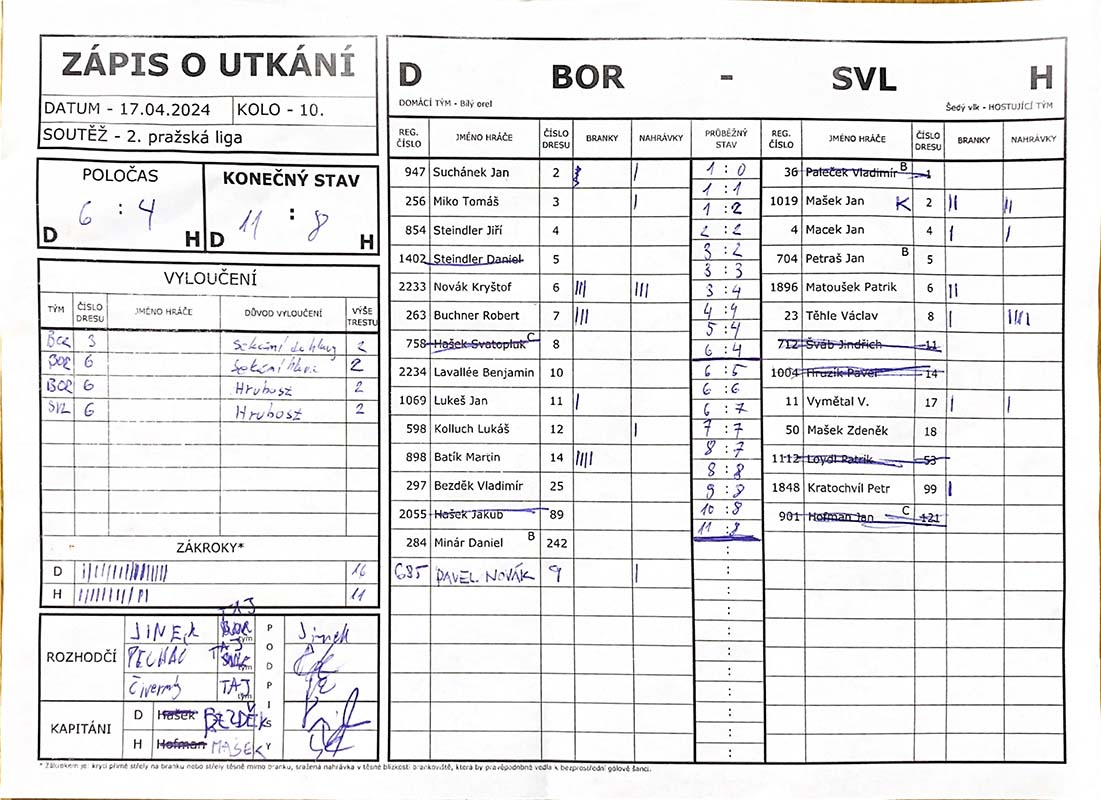 ZÁPIS O UTKÁNÍ
DATUM - 17.04.2024 KOLO - 10.
SOUTĚŽ - 2. pražská liga
POLOČAS
6 : 4
D H
KONEČNÝ STAV
11 : 8
D H
VYLOUČENÍ
TÝM ČÍSLO DRESU JMÉNO HRÁČE DŮVOD VYLOUČENÍ VÝŠE TRESTU
BOR 3 2
BOR 6 2
BOR 6 Hrubost 2
SVL 6 Hrubost 2
ZÁKROKY*
D 16
H 11
ROZHODČÍ
JINEK TAJ
PECHAČ TAJ
Čiverný TAJ
PODPISY
Jinek
KAPITÁNI
D Hašek BEZDĚK
H Hofman MAŠEK
D BOR - SVL H
DOMÁCÍ TÝM - Bílý orel Šedý vlk - HOSTUJÍCÍ TÝM
REG. ČÍSLO JMÉNO HRÁČE ČÍSLO DRESU BRANKY NAHRÁVKY PRŮBĚŽNÝ STAV REG. ČÍSLO JMÉNO HRÁČE ČÍSLO DRESU BRANKY NAHRÁVKY
947 Suchánek Jan 2 |
256 Miko Tomáš 3 |
854 Steindler Jiří 4
1402 Steindler Daniel 5
2233 Novák Kryštof 6 ||| |||
263 Buchner Robert 7 |||
758 Hašek Svatopluk C 8
2234 Lavallée Benjamin 10
1069 Lukeš Jan 11 |
598 Kolluch Lukáš 12 |
898 Batík Martin 14 ||||
297 Bezděk Vladimír 25
2055 Hašek Jakub 89
284 Minár Daniel B 242
685 PAVEL NOVÁK 9 |
1 : 0
1 : 1
1 : 2
2 : 2
3 : 2
3 : 3
3 : 4
4 : 4
5 : 4
6 : 4
6 : 5
6 : 6
6 : 7
7 : 7
8 : 7
8 : 8
9 : 8
10 : 8
11 : 8
36 Paleček Vladimír B 1
1019 Mašek Jan K 2 || ||
4 Macek Jan 4 | |
704 Petraš Jan B 5
1896 Matoušek Patrik 6 ||
23 Těhle Václav 8 | ||||
712 Šváb Jindřich 11
1004 Hruzik Pavel 14
11 Vymětal V. 17 | |
50 Mašek Zdeněk 18
1112 Loydl Patrik 53
1848 Kratochvíl Petr 99 |
901 Hofman Jan C 121
* Zákrokem je: krytí přímé střely na branku nebo střely těsně mimo branku, sražená nahrávka v těsné blízkosti brankoviště, která by pravěpodobně vedla k bezprostřední gólové šanci.